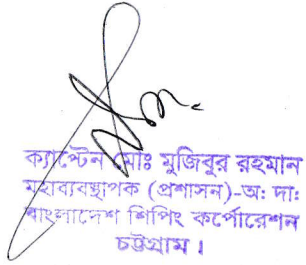 ক্যাপ্টেন মোঃ মুজিবুর রহমান
মহাব্যবস্থাপক (প্রশাসন)-অ: দা:
বাংলাদেশ শিপিং কর্পোরেশন
চট্টগ্রাম।